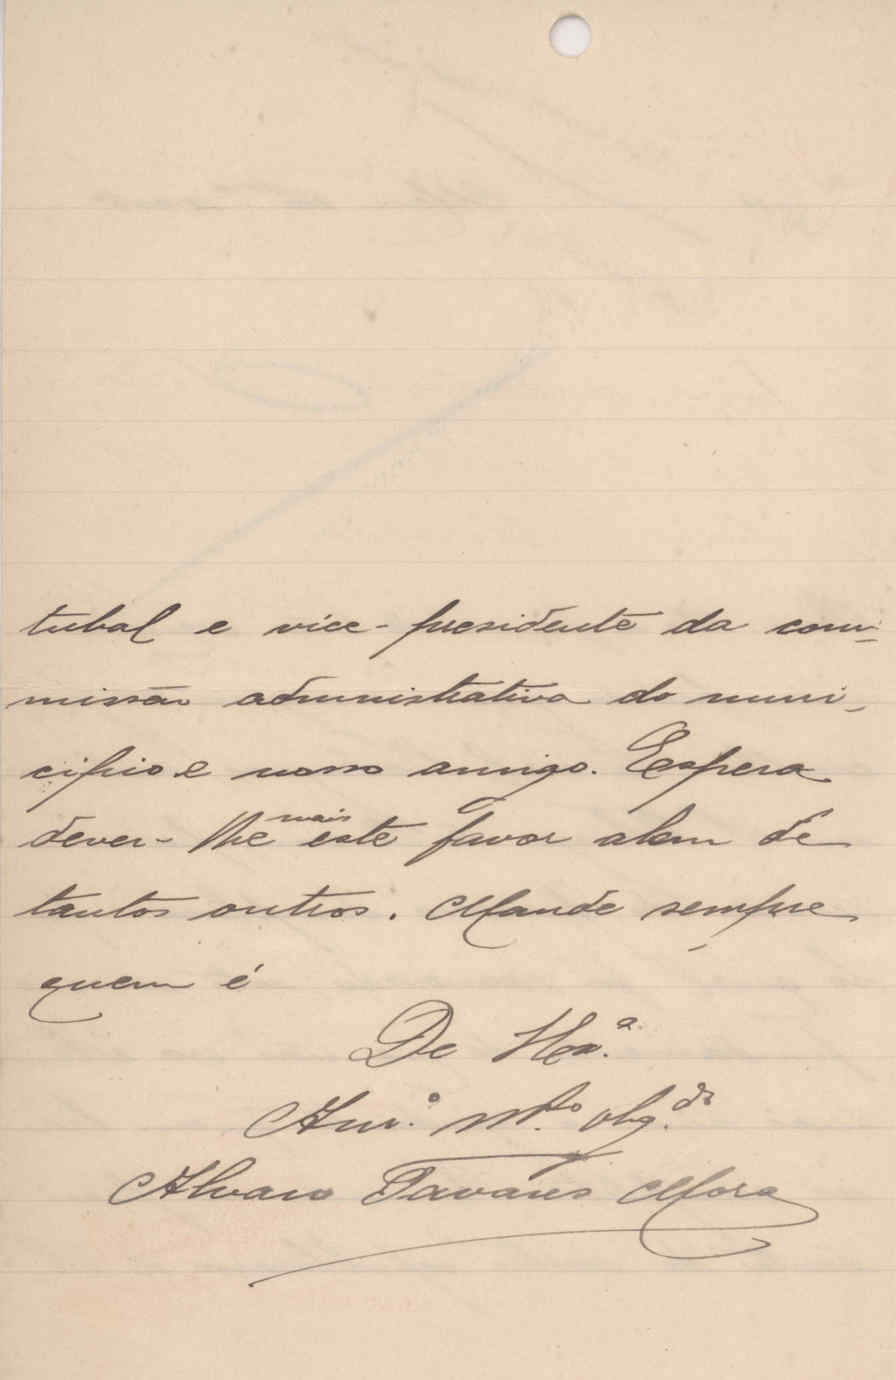 tubal e vice-presidente da com-
missão administrativa do muni-
cipio e nosso amigo. Espera
dever-lhe mais este favor alem de
tantos outros. Mande sempre
quem é
De V. Ex.ª
Am.º M.to obg.do
Alvaro Tavares Mora